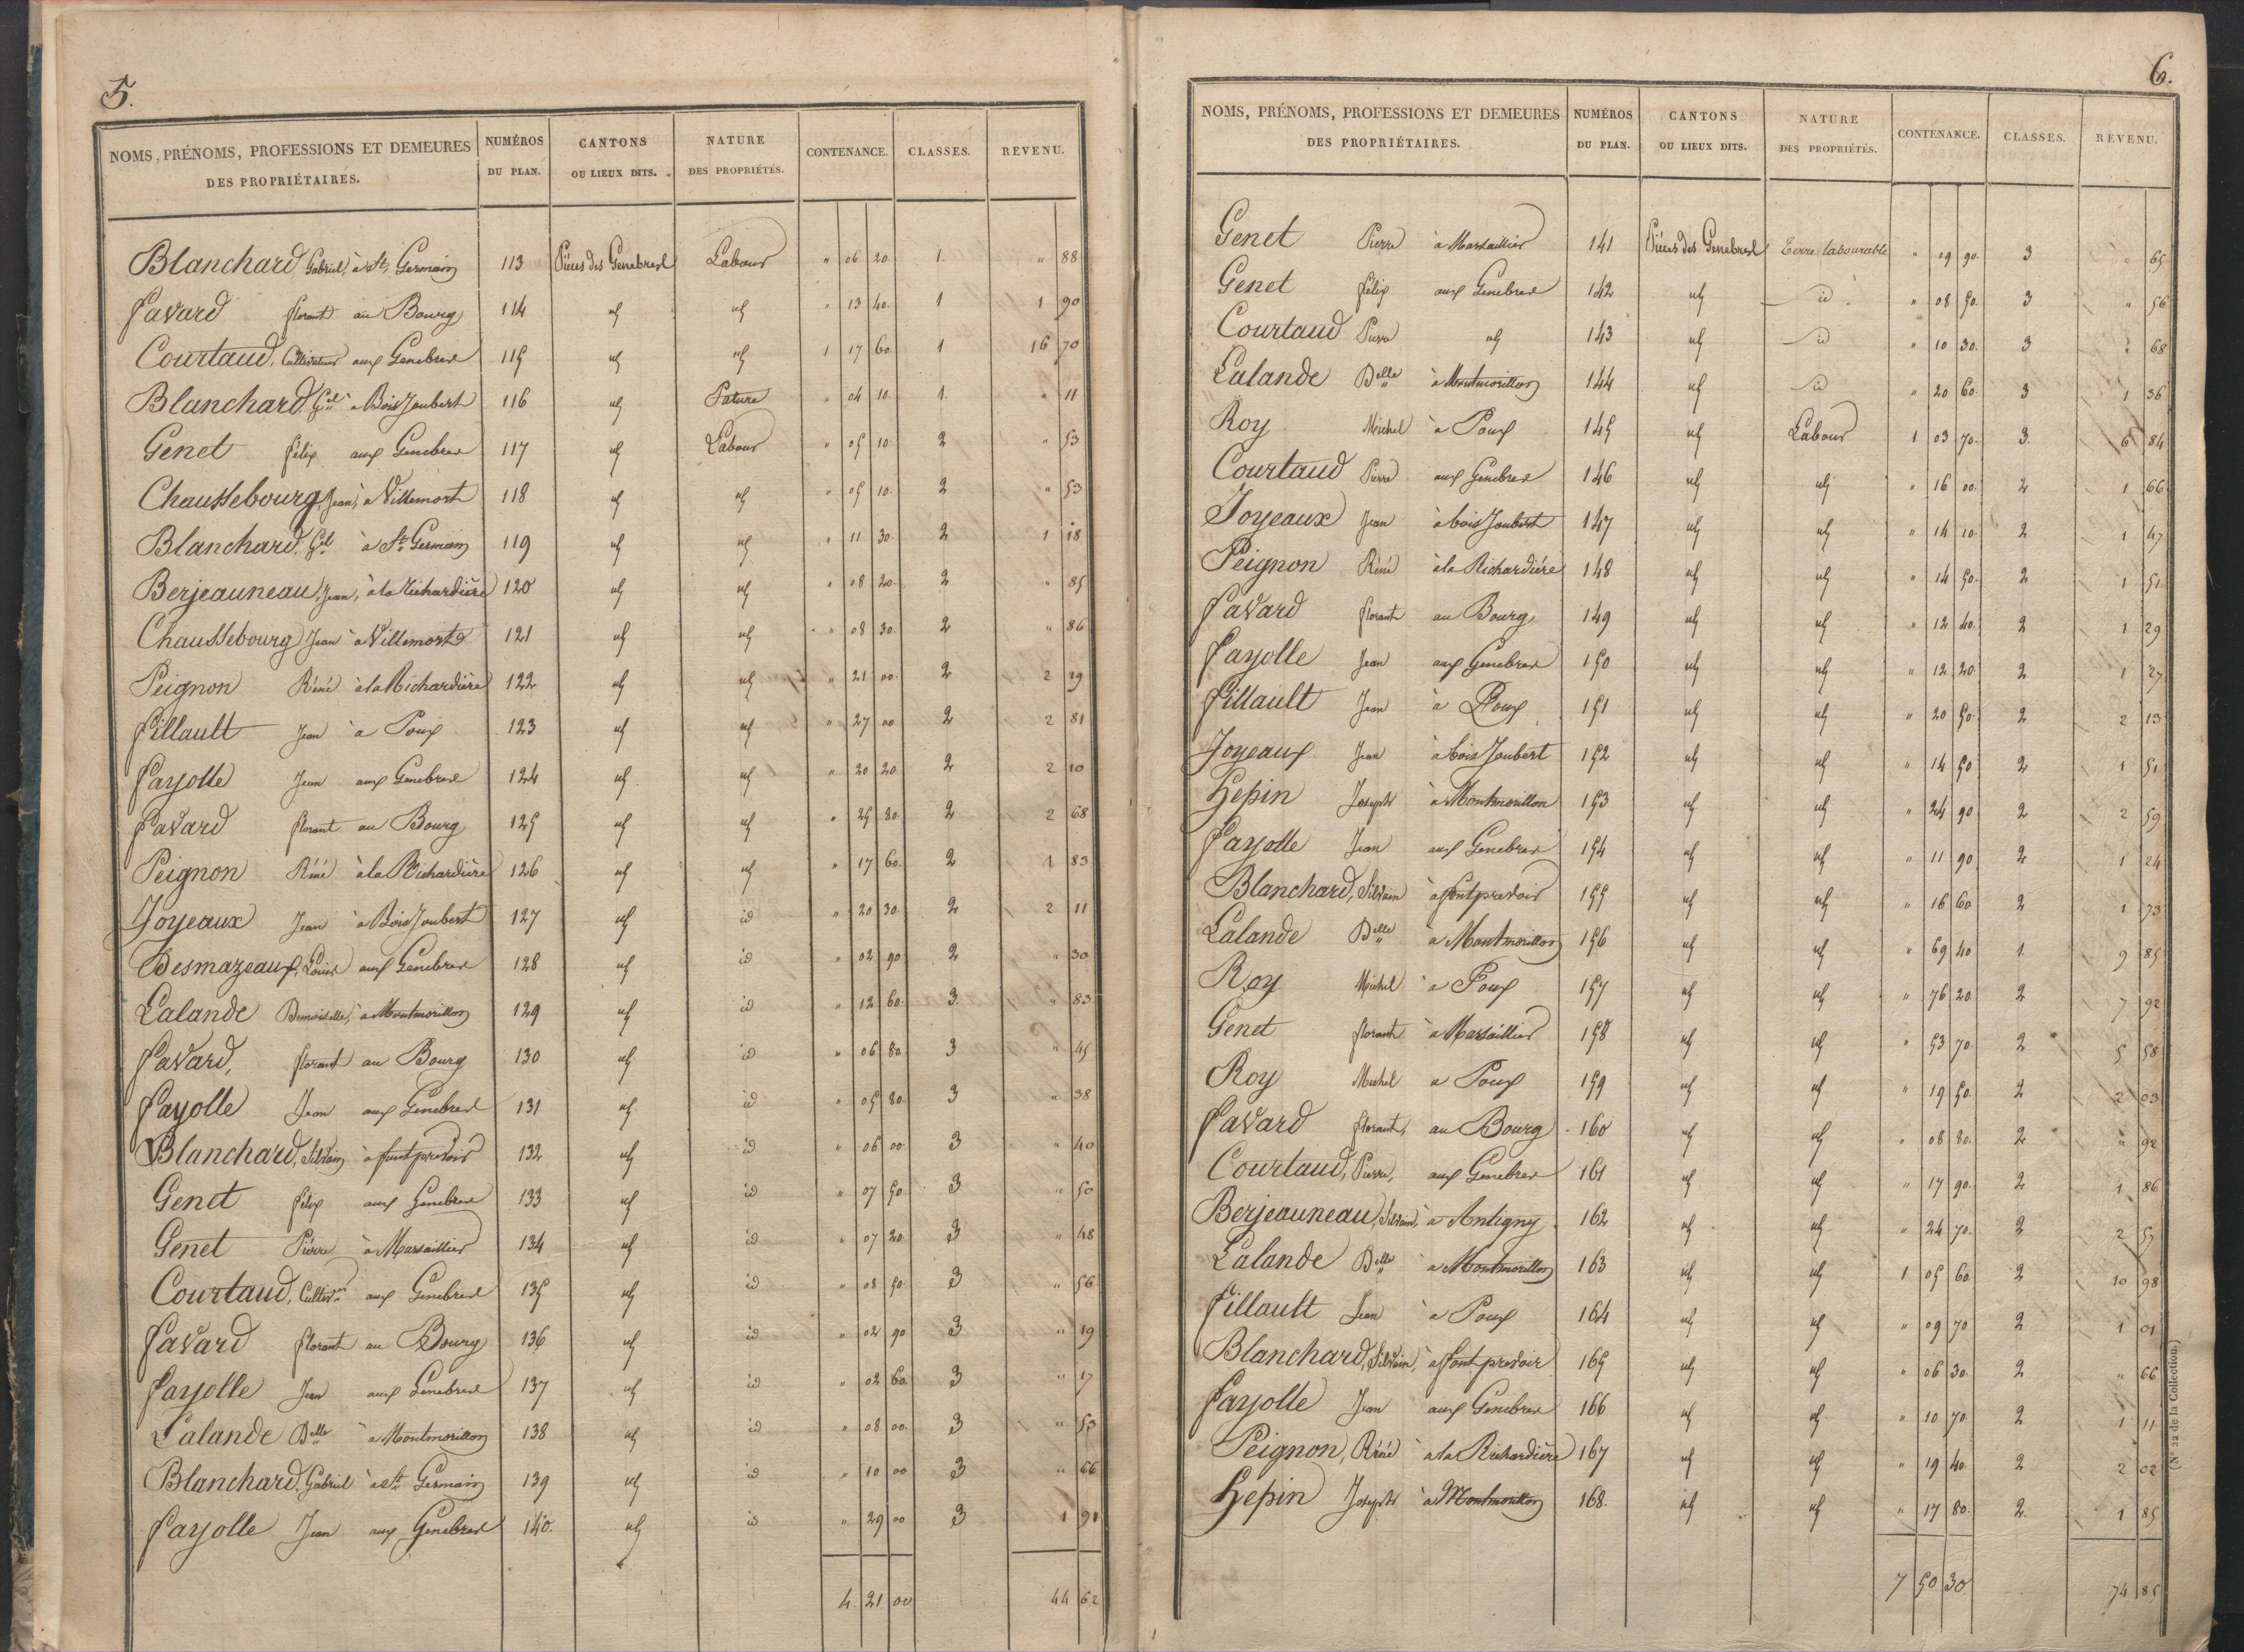 5.
NOMS, PRÉNOMS, PROFESSIONS ET DEMEURES DES PROPRIÉTAIRES. NUMÉROS DU PLAN. CANTONS OU LIEUX DITS. NATURE DES PROPRIÉTÉS. CONTENANCE. CLASSES. REVENU.
Blanchard Gabriel, à St Germain 113 Pièces des Genebres Labour " 06 20 1. " 88
favard florant au Bourg 114 id id " 13 40 1 1 90
Courtaud, Cultivateur aux Genebres 115 id id 1 17 60 1 16 70
Blanchard Gel à Bois Joubert 116 id Pature " 04 10 1. " 11
Genet félix aux Genebres 117 id Labour " 05 10 2 " 53
Chaussebourg, Jean, à Villemort 118 id id " 05 10 2 " 53
Blanchard, Gel à St Germain 119 id id " 11 30 2 1 18
Berjeauneau, Jean, à la Richardière 120 id id " 08 20 2 " 85
Chaussebourg Jean à Villemort 121 id id " 08 30 2 " 86
Peignon Réné à la Richardière 122 id id " 21 00 2 2 19
fillault Jean à Poux 123 id id " 27 00 2 2 81
fayolle Jean aux Genebres 124 id id " 20 20 2 2 10
favard florant au Bourg 125 id id " 25 80 2 2 68
Peignon Réné à la Richardière 126 id id " 17 60 2 1 83
Joyeaux Jean à Bois Joubert 127 id id " 20 30 2 2 11
Desmazeaux, Louis aux Genebres 128 id id " 02 90 2 " 30
Lalande Demoiselle, à Montmorillon 129 id id " 12 60 3. " 83
favard, florant au Bourg 130 id id " 06 80 3 " 45
fayolle Jean aux Genebres 131 id id " 05 80 3 " 38
Blanchard, Silvain à fontprevoir 132 id id " 06 00 3 " 40
Genet félix aux Genebres 133 id id " 07 50 3 " 50
Genet Pierre à Marsaillier 134 id id " 07 20 3 " 48
Courtaud, Cultivr aux Genebres 135 id id " 08 50 3 " 56
favard florant au Bourg 136 id id " 02 90 3 " 19
fayolle Jean aux Genebres 137 id id " 02 60 3 " 17
Lalande Delle à Montmorillon 138 id id " 08 00 3 " 53
Blanchard Gabriel à St Germain 139 id id " 10 00 3 " 66
fayolle Jean aux Genebres 140. id id " 29 00 3 1 91
4 21 00 44 62
6.
NOMS, PRÉNOMS, PROFESSIONS ET DEMEURES DES PROPRIÉTAIRES. NUMÉROS DU PLAN. CANTONS OU LIEUX DITS. NATURE DES PROPRIÉTÉS. CONTENANCE. CLASSES. REVENU.
Genet Pierre à Marsaillier 141 Pièces des Genebres Terre labourable " 09 90 3 " 65
Genet félix aux Genebres 142 id id " 08 50 3 " 56
Courtaud Pierre id 143 id id " 10 30 3 " 68
Lalande Delle à Montmorillon 144 id id " 20 60 3 1 36
Roy Michel à Poux 145 id Labour 1 03 70 3. 6 84
Courtaud Pierre aux Genebres 146 id id " 16 00 2 1 66
Joyeaux Jean à bois Joubert 147 id id " 14 10 2 1 47
Peignon Réné à la Richardière 148 id id " 14 50 2 1 51
favard florant au Bourg 149 id id " 12 40 2 1 29
fayolle Jean aux Genebres 150 id id " 12 20 2 1 27
fillault Jean à Poux 151 id id " 20 50 2 2 13
Joyeaux Jean à bois Joubert 152 id id " 14 50 2 1 51
Hepin Joseph à Montmorillon 153 id id " 24 90 2 2 59
fayolle Jean aux Genebres 154 id id " 11 90 2 1 24
Blanchard, Silvain à fontprevoir 155 id id " 16 60 2 1 73
Lalande Delle à Montmorillon 156 id id " 69 40 1. 9 85
Roy Michel à Poux 157 id id " 76 20 2 7 92
Genet florant à Marsaillier 158 id id " 53 70 2 5 58
Roy Michel à Poux 159 id id " 19 50 2 2 03
favard florant, au Bourg 160 id id " 08 80 2 " 92
Courtaud, Pierre, aux Genebres 161 id id " 17 90 2 1 86
Berjeauneau, Silvain, à Antigny 162 id id " 24 70 2 2 57
Lalande Delle à Montmorillon 163 id id 1 05 60 2 10 98
fillault Jean à Poux 164 id id " 09 70 2 1 01
Blanchard, Silvain, à fontprevoir 165 id id " 06 30 2 " 66
fayolle Jean aux Genebres 166 id id " 10 70 2 1 11
Peignon, Réné à la Richardière 167 id id " 19 40 2 2 02
Hepin Joseph à Montmorillon 168. id id " 17 80 2. 1 85
7 50 30 74 85
(N° 22 de la Collection.)